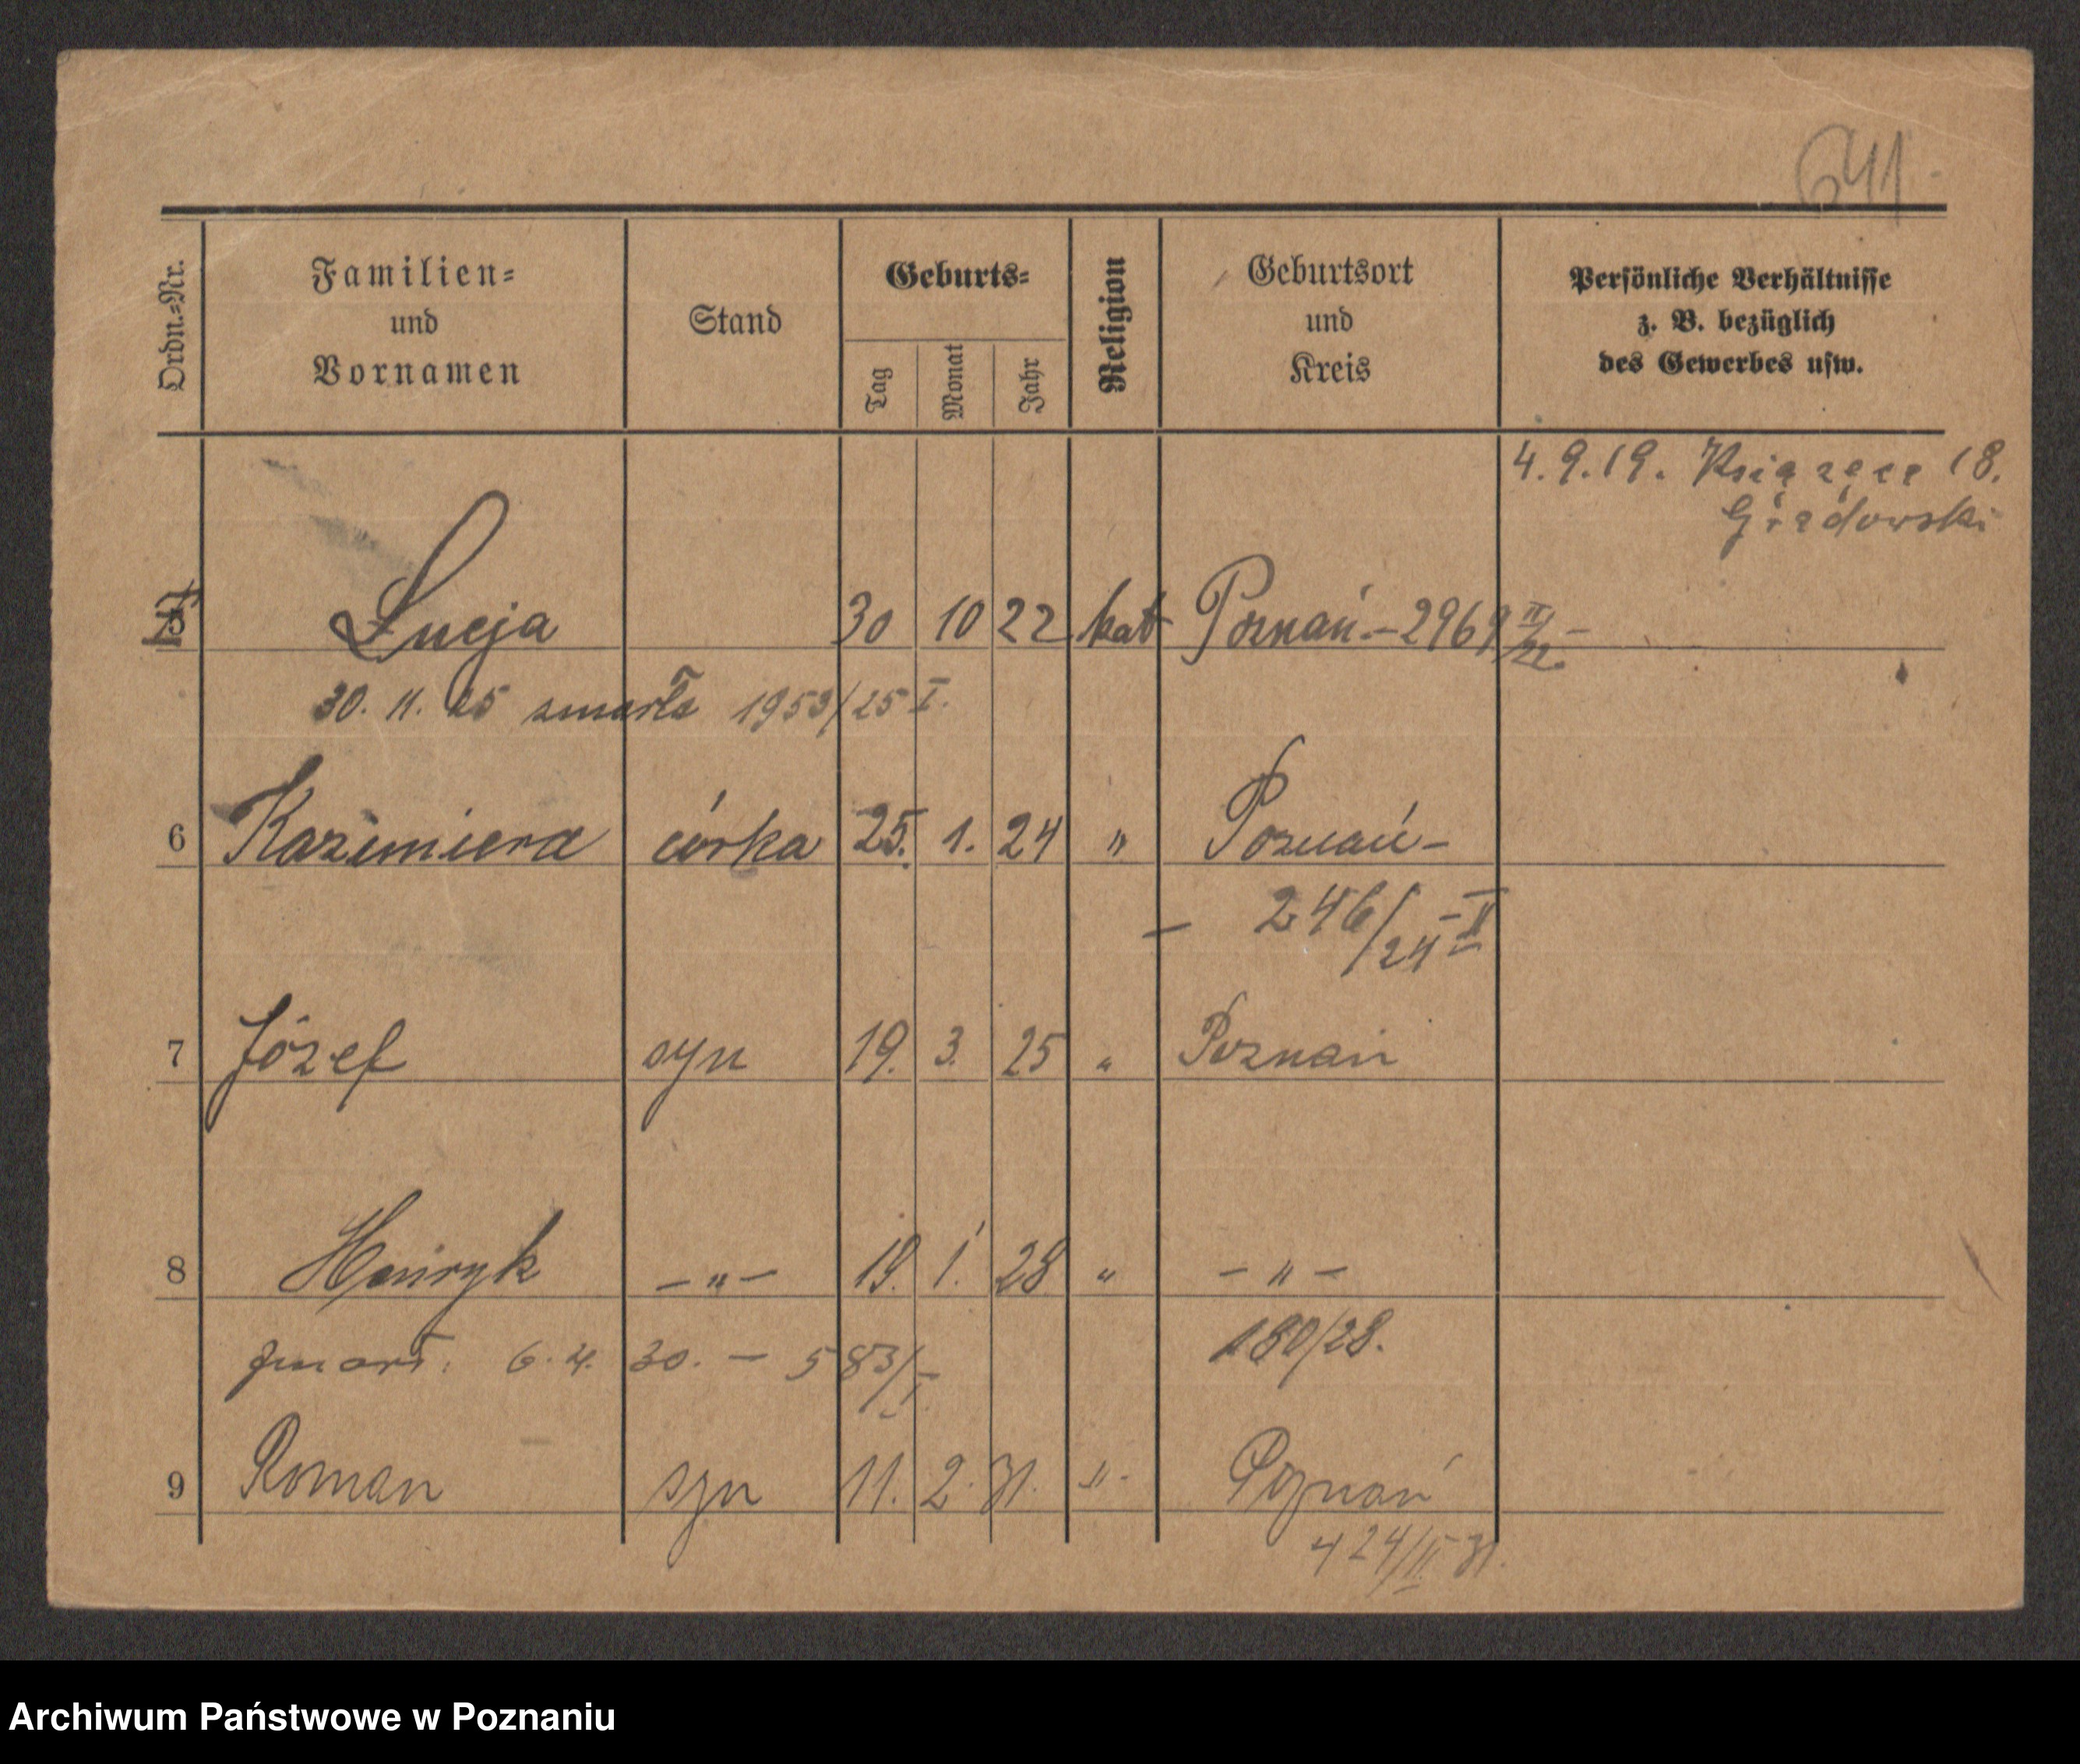 641.
Ordn.-Nr.
Familien-
und
Vornamen
Stand
Geburts-
Tag
Monat
Jahr
Religion
Geburtsort
und
Kreis
Persönliche Verhältnisse
z. B. bezüglich
des Gewerbes usw.
4.9.19. 18.
5 Łucja 30 10 22 kat Poznań - 2969 II/22.
30. 11. 25 zmarła 1953/25 I.
6 Kazimiera córka 25. 1. 24 " Poznań -
- 246/24 - II
7 Józef syn 19. 3. 25 " Poznań
8 Henryk - " - 19. 1. 28 " - " -
180/28.
zmarł. 6. 4. 30. - 583/I.
9 Roman syn 11. 2. 31. " Poznań
424/II 31.
Archiwum Państwowe w Poznaniu